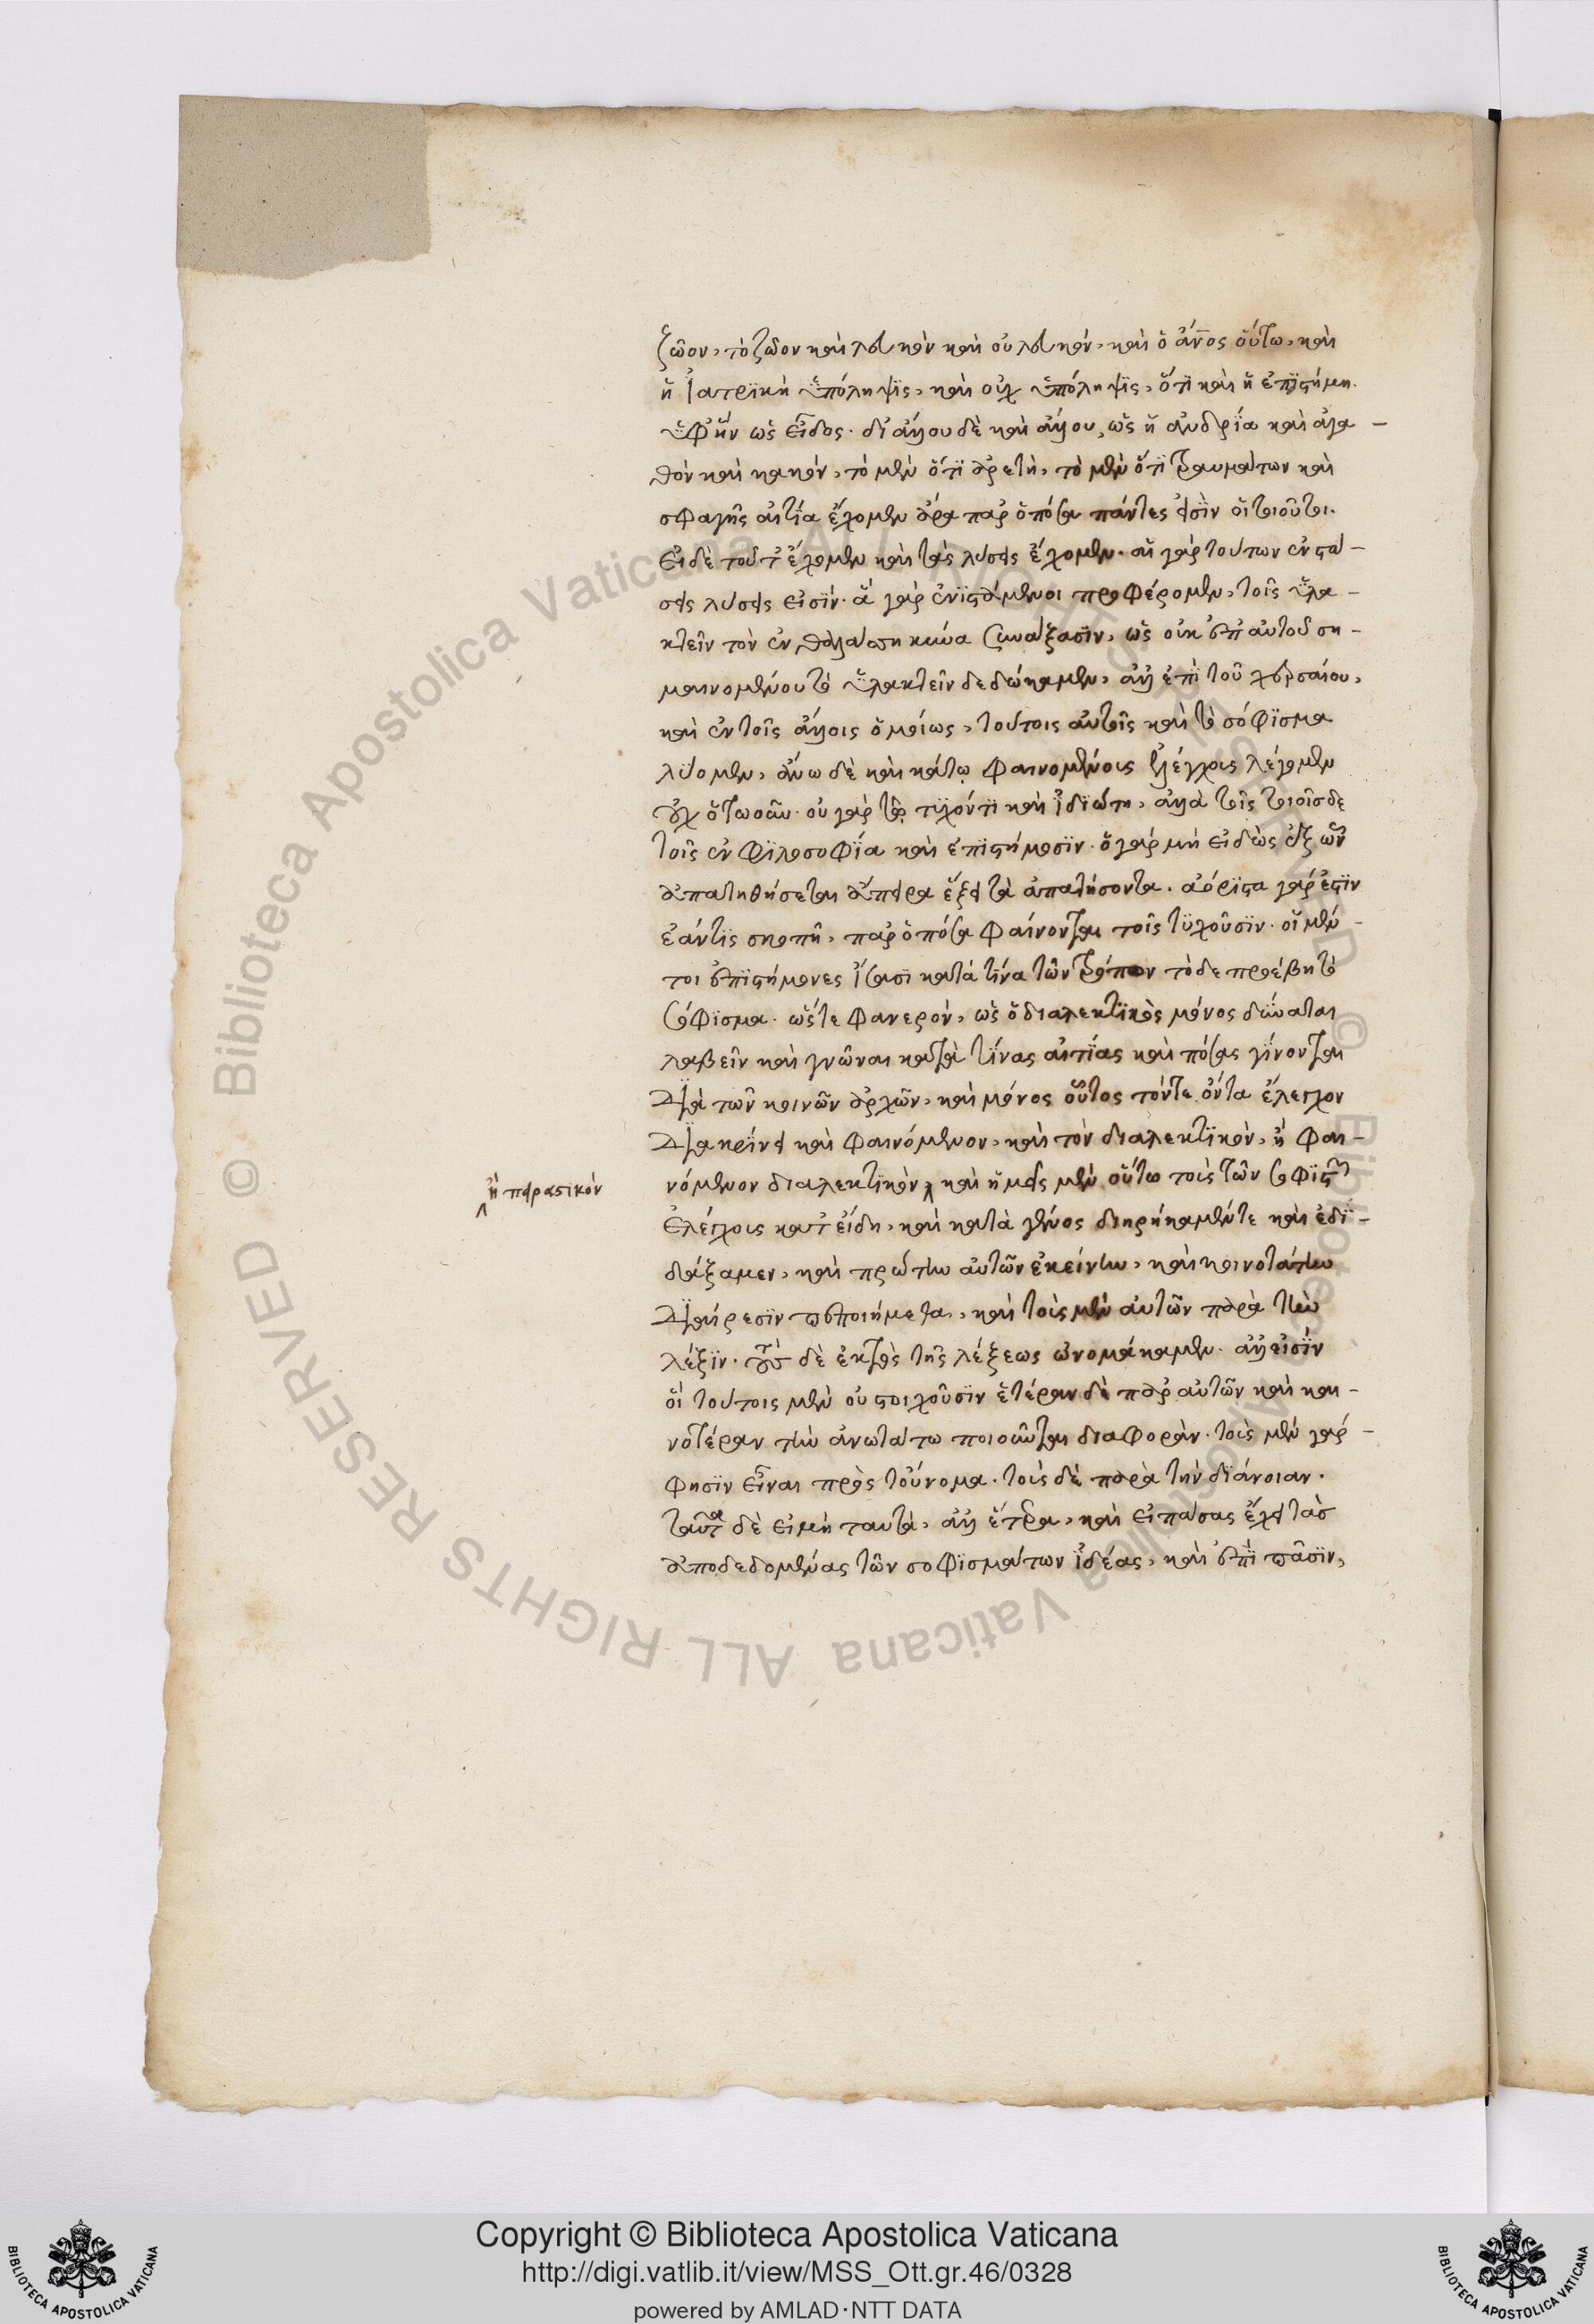 ζῶον, τὸ ζῶον καὶ λευκὸν καὶ οὐ λευκόν, καὶ ὁ ἄνος οὕτω, καὶ
ἡ ἰατρικὴ ὑπόληψις, καὶ οὐχ ὑπόληψις, ὅτι καὶ ἡ ἐπιστήμη.
ὑφ' ἣν ὡς εἶδος. δι' ἄλλου δὲ καὶ ἄλλου, ὡς ἡ ἀνδρία καὶ ἀγα-
θὸν καὶ κακόν, τὸ μὲν ὅτι ἀρετὴ, τὸ μὲν ὅτι τραυμάτων καὶ
σφαγῆς αἰτία ἔχομεν ἄρα παρ' ὁπόσα πάντες εἰσὶν οἱ τοιοῦτοι.
εἰ δὲ τοῦτ' ἔχομεν καὶ τὰς λύσεις ἔχομεν. αἱ γὰρ τούτων ἐνστά-
σεις λύσεις εἰσίν. ἃ γὰρ ἐνιστάμενοι προφέρομεν, τοῖς ὑλα-
κτεῖν τὸν ἐν θαλάσση κύνα συνάξασιν, ὡς οὐκ ἐπ' αὐτοῦ ση-
μαινομένου τὸ ὑλακτεῖν δεδώκαμεν, ἀλλ' ἐπὶ τοῦ χερσαίου,
καὶ ἐν τοῖς ἄλλοις ὁμοίως, τούτοις αὐτοῖς καὶ τὸ σόφισμα
λύομεν, ἄνω δὲ καὶ κάτω φαινομένοις ἐλέγχοις λέγομεν
οὐχ ὁτωοῦν. οὐ γὰρ τῷ τυχόντι καὶ ἰδιώτη, ἀλλὰ τοῖς τοιοῖσδε
τοῖς ἐν φιλοσοφία καὶ ἐπιστήμοσιν. ὁ γὰρ μὴ εἰδὼς ἐξ ὧν
ἀπατηθήσεται ἄπειρα ἕξει τὰ ἀπατήσοντα. ἀόριστα γάρ ἐστιν
ἐάν τις σκοπῆ, παρ' ὁπόσα φαίνονται τοῖς τυχοῦσιν. οἱ μέν-
τοι ἐπιστήμονες ἴσασι κατά τίνα τῶν τρόπων τὸ δε προέβη τὸ
σόφισμα. ὥστε φανερόν, ὡς ὁ διαλεκτικὸς μόνος δύναται
λαβεῖν καὶ γνῶναι κατὰ τίνας αἰτίας καὶ πόσας γίνονται
διὰ τῶν κοινῶν ἀρχῶν, καὶ μόνος οὗτος τόν τε ὄντα ἔλεγχον
διακρίνει καὶ φαινόμενον, καὶ τὸν διαλεκτικὸν, ἢ φαι-
νόμενον διαλεκτικὸν καὶ ἡμεῖς μὲν οὕτω τοὺς τῶν σοφιστῶν
ἢ πειραστικόν
ἐλέγχους κατ' εἴδη, καὶ κατὰ γένος διηρήκαμέν τε καὶ ἐδι-
δάξαμεν, καὶ πρώτην αὐτῶν ἐκείνην, καὶ κοινοτάτην
διαίρεσιν πεποιήμεθα, καὶ τοὺς μὲν αὐτῶν παρὰ τὴν
λέξιν. τοὺς δὲ ἐκτὸς τῆς λέξεως ὠνομάκαμεν. ἀλλ' εἰσὶν
οἳ τούτοις μὲν οὐ στοιχοῦσιν ἑτέραν δὲ παρ' αὐτῶν καὶ και-
νοτέραν τὴν ἀνωτάτω ποιοῦνται διαφορὰν. τοὺς μὲν γάρ
φησιν εἶναι πρὸς τοὔνομα. τοὺς δὲ παρὰ τὴν διάνοιαν.
ταῦτα δὲ εἰ μὴ ταυτὰ, ἀλλ' ἕτερα, καὶ εἰ πάσας ἔχει τὰς
ἀποδεδομένας τῶν σοφισμάτων ἰδέας, καὶ ἐπὶ πᾶσιν,
Copyright © Biblioteca Apostolica Vaticana
http://digi.vatlib.it/view/MSS_Ott.gr.46/0328
powered by AMLAD·NTT DATA
BIBLIOTECA APOSTOLICA VATICANA
BIBLIOTECA APOSTOLICA VATICANA
© Biblioteca Apostolica Vaticana ALL RIGHTS RESERVED
© Biblioteca Apostolica Vaticana ALL RIGHTS RESERVED